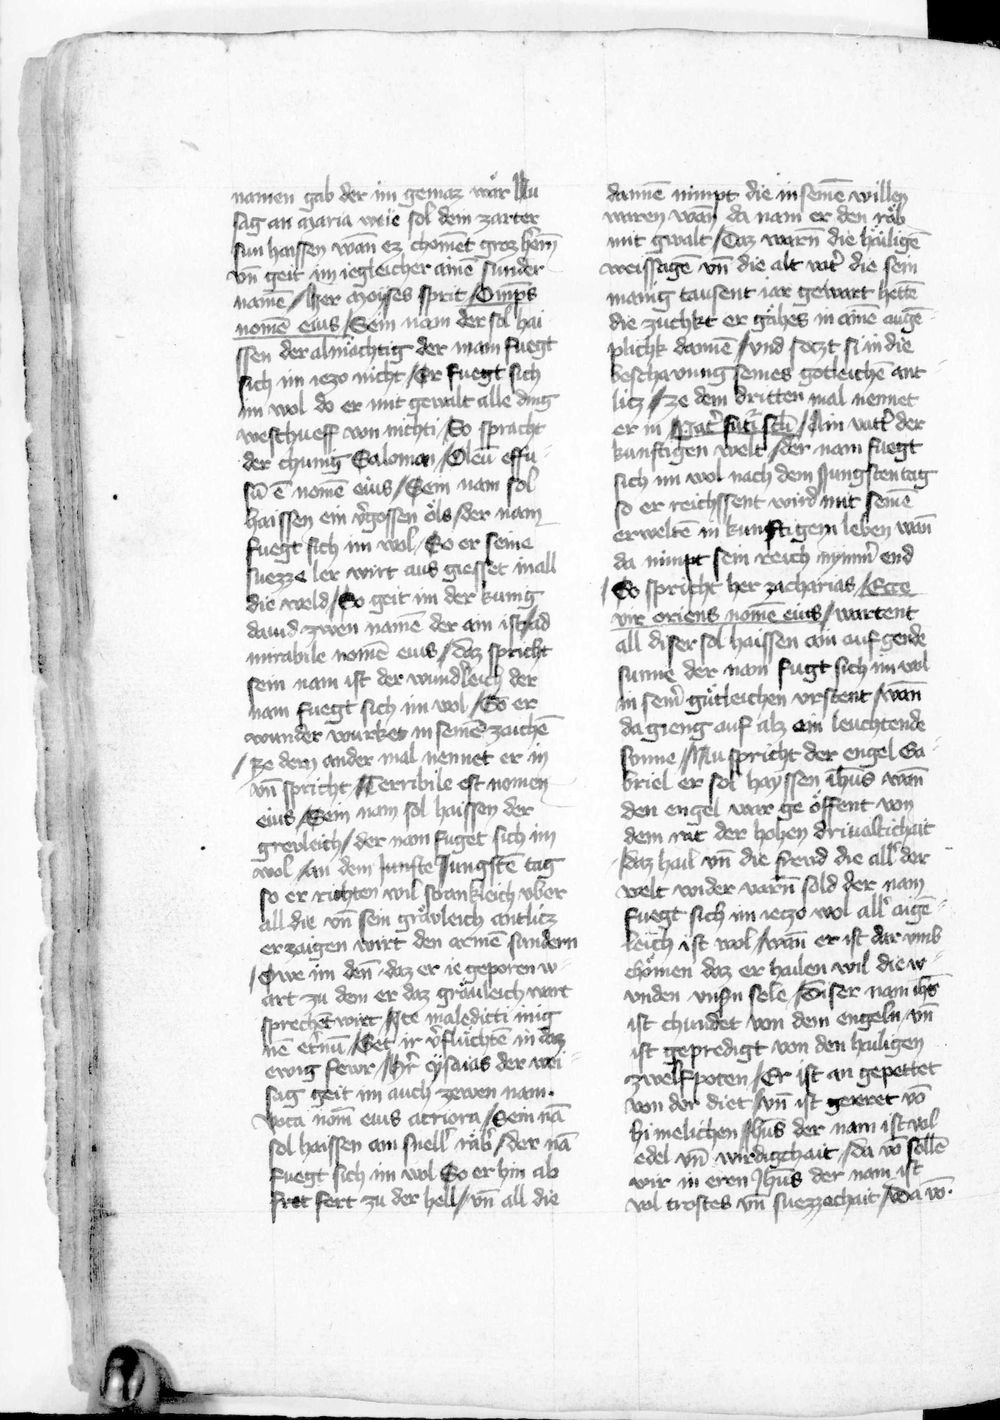 namen gab der im gemaz wär Nu
sag an maria weie sol dem zarter
sun haissen wan̄ ez chom̄et groz her̄n
vn̄ geit im iegleicher ainē sunder
namē / her Moyses sprit / Om̄ps
nomē eius / Sein nam der sol hai
ssen der almächtig der nam fuegt
sich im iezo nicht / Er fuegt sich
im wol do er mit gewalt alle ding
weschueff von nichti / So spracht
der chunig Saloman / Oleū effu-
sū ē nomē eius / Sein nam sol
haissen ein v̓gossen öls / der nam
fuegt sich im wol / So er seine
suezze ler wirt aus giesset in all
die weld / So geit im der kunig
dauid zwen namē der ain ist / ad
mirabile nomē eius / daz spricht
sein nam ist der wundleich der
nam fuegt sich im wol / So er
wunder wurket in seinē zaichē
/ ze dem ander mal nennet er in
vn̄ spricht / Terribile est nomen
eius / Sein nam sol haissen der
grevleich / der nam fuget sich im
wol / an dem Junste Jungstē tag
so er richten wil strankleich vber
all die vn̄ sein grävleich antlicz
erzaigen wirt den armē sundern
/ Owe im den̄ daz er ie geporen w-
art zu dem er daz gräuleich wart
sprechēt wirt / Ite maledicti in ig
nē et̓nū / Get ir v̓fluchtē in daz
ewig fewr / Hr̓ ysaias der wei-
sag geit im auch zewen nam.
Voca nom̄ eius acriora / Sein nā
sol haissen ain snell räb̓ / der nā
fuegt sich im wol So er hin ab
fret fert zu der hell / vn̄ all die
dannē nimpt die in seinē willen
waren wan̄ da nam er den räb
mit gwalt / Daz warn̄ die häiligē
weissagē vn̄ die alt vät̓ die sein
manig tausent iar gewart hettē
die zuchkt er gähes in ainē auge-
plichk dannē / vnd seczt si in die
beschavung seines gotleichē ant-
licz / ze dem dritten mal nennet
er in / Pat̓ futr̓i scli̅ / Ain vatt̓ der
kunftigen welt / der nam fuegt
sich im wol nach dem Jungsten tag
so er reichssent wird mit seinē
erweltē in kunftigem leben wan̄
da nimpt sein reich nynm̓ end
/ So spricht her zacharias / Ecce
vir oriens nomē eius / wartent
all diser sol haissen ain auf gende
sunne der nam fugt sich im wol
in sein̄ gütleichen vrstent / wan̄
da gieng auf alz ein leuchtende
sonne / Nu spricht der engel Ga-
briel er sol hayssen ih̄us wan̄
den engel war ge öffent von
dem rat der hohen driualtichait
/ daz hail vn̄ die frewd die all̓ der
welt wider varn̄ sold der nam
fuegt sich im ieczo wol all̓ aigē-
leich ist wol / wan̄ er ist dar vmb
chömen daz er hailen wil die w-
vnden vnsn̓ sele / diser nam ih̄s
ist chundet von dem engeln vn̄
ist gepredigt von den hailigen
zwelfpoten / Er ist an gepettet
von der diet / vn̄ ist geeret vō
himelichen / Ih̄us der nam ist vol
edel vn̄ wirdigchait / da vō sollē
wir in eren Jh̄us der nam ist
vol trostes vn̄ suezzechait / da vō.